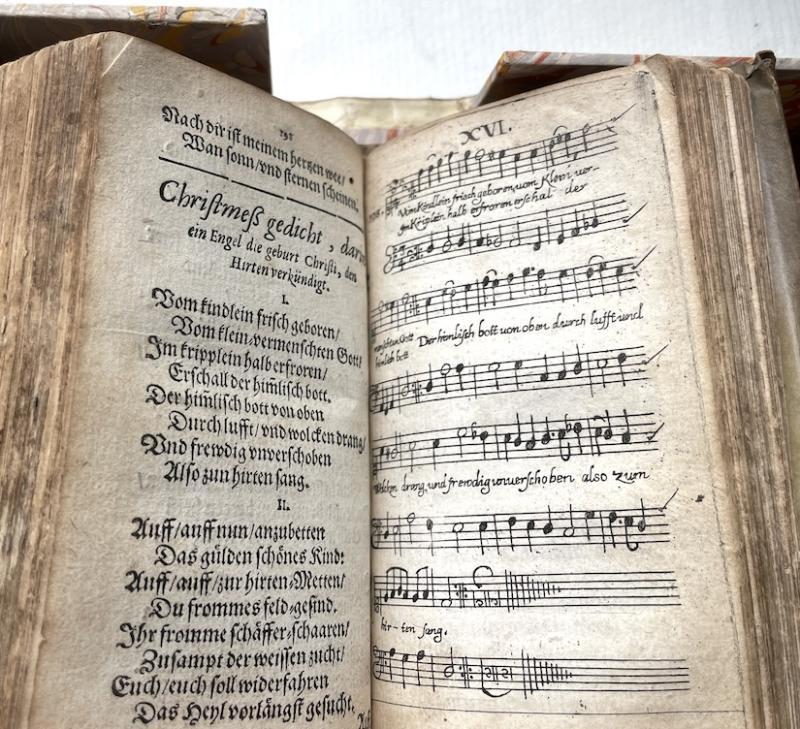 191
Nach dir ist meinem hertzen wee/
Wan sonn/vnd sternen scheinen.
Christmeß gedicht, darin
ein Engel die geburt Christi, den
Hirten verkündigt.
I.
Vom kindlein frisch geboren/
Vom klein-vermenschten Gott/
Im kripplein halb erfroren/
Erschall der him̃lisch bott.
Der him̃lisch bott von oben
Durch lufft/vnd wolcken drang/
Vnd frewdig vnverschoben
Also zun hirten sang.
II.
Auff/auff nun/anzubetten
Das gülden schönes Kind:
Auff/auff/zur hirten-Metten/
Du frommes feld-gesind.
Ihr fromme schäffer-schaaren/
Zusampt der weissen zucht/
Euch/euch soll widerfahren
Das Heyl vorlängst gesucht.
XVI.
Vom Kindlein frisch geboren, vom Klein, ver-
Kriplein halb erfroren erschal der
Gott Der himlisch bott von oben durch lufft und
himlisch bott
Wolcken drang, und frewdig unuerschoben also zum
hir-ten sang.